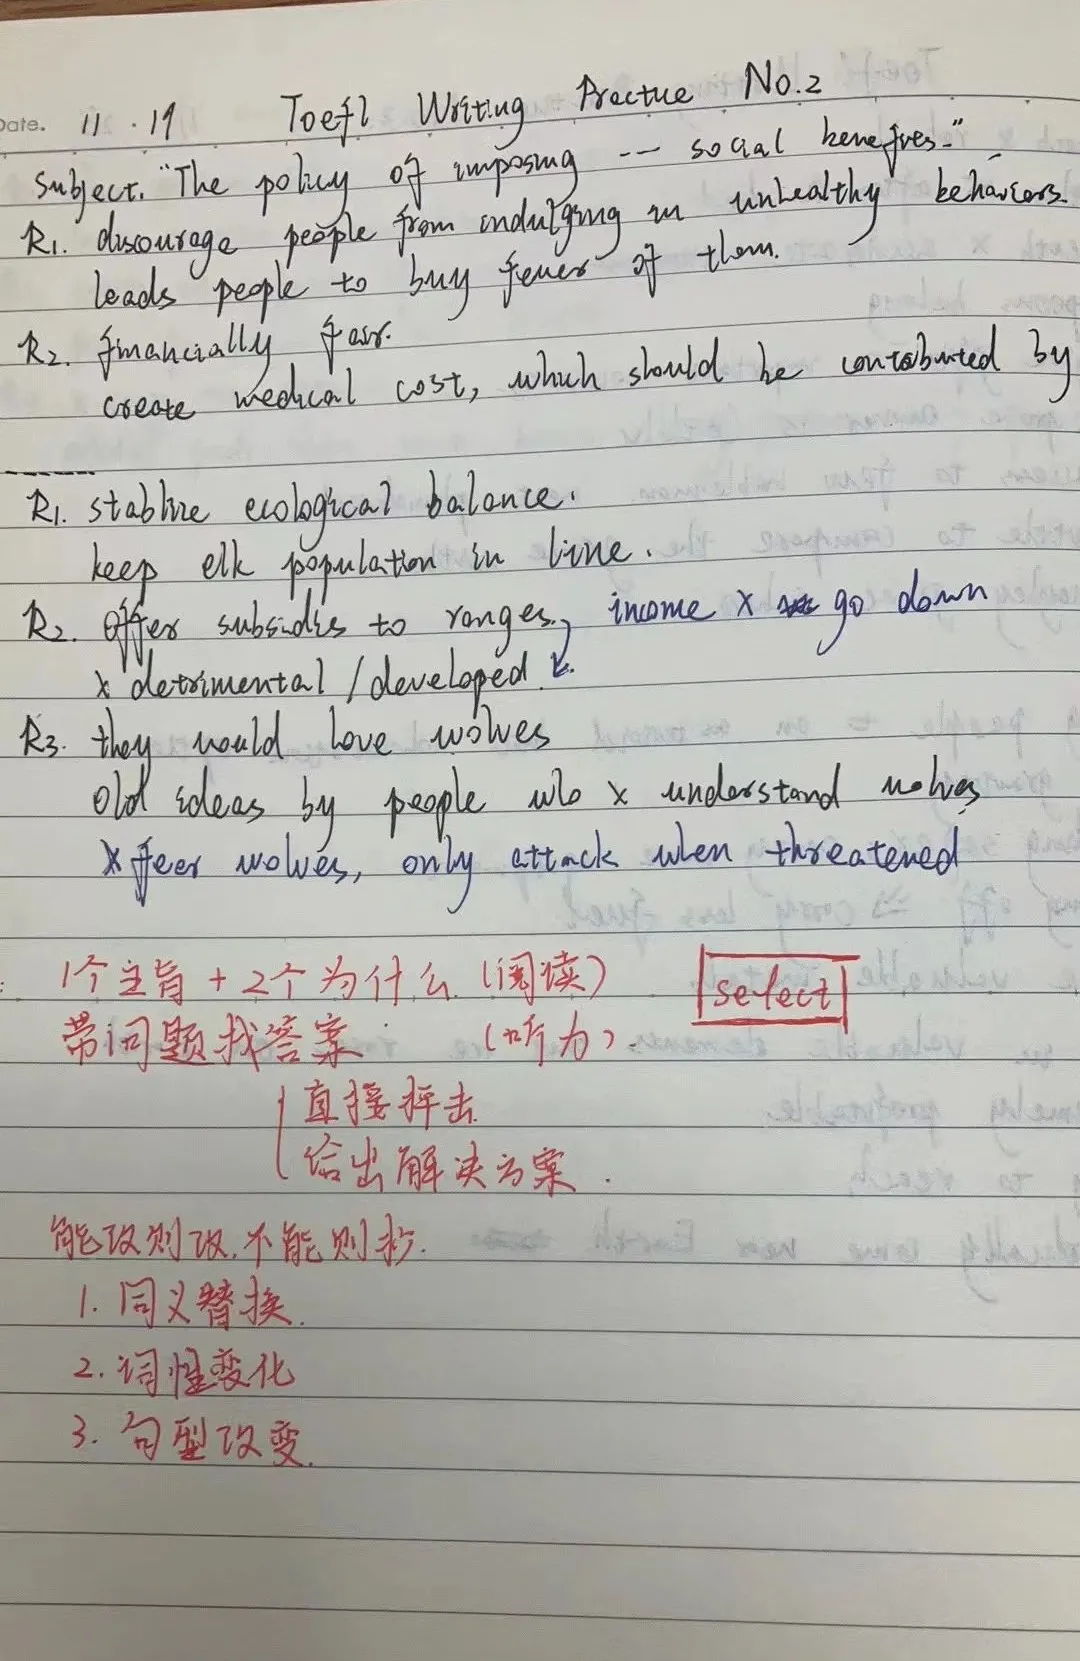 Date. 11.19 Toefl Writing Practice No.2
Subject. "The policy of imposing --- social benefives."
R1. discourage people from indulging in unhealthy behaviors.
leads people to buy fewer of them.
R2. financially fair.
create medical cost, which should be contributed by
R1. stablize ecological balance.
keep elk population in line.
R2. offer subsidies to ranges, income x go down
x detrimental / developed.
R3. they would love wolves
old ideas by people who x understand wolves
x feer wolves, only attack when threatened
1个主旨 + 2个为什么 (阅读) select
带问题找答案 (听力)
直接抨击
给出解决方案.
能改则改,不能则抄.
1. 同义替换.
2. 词性变化
3. 句型改变.